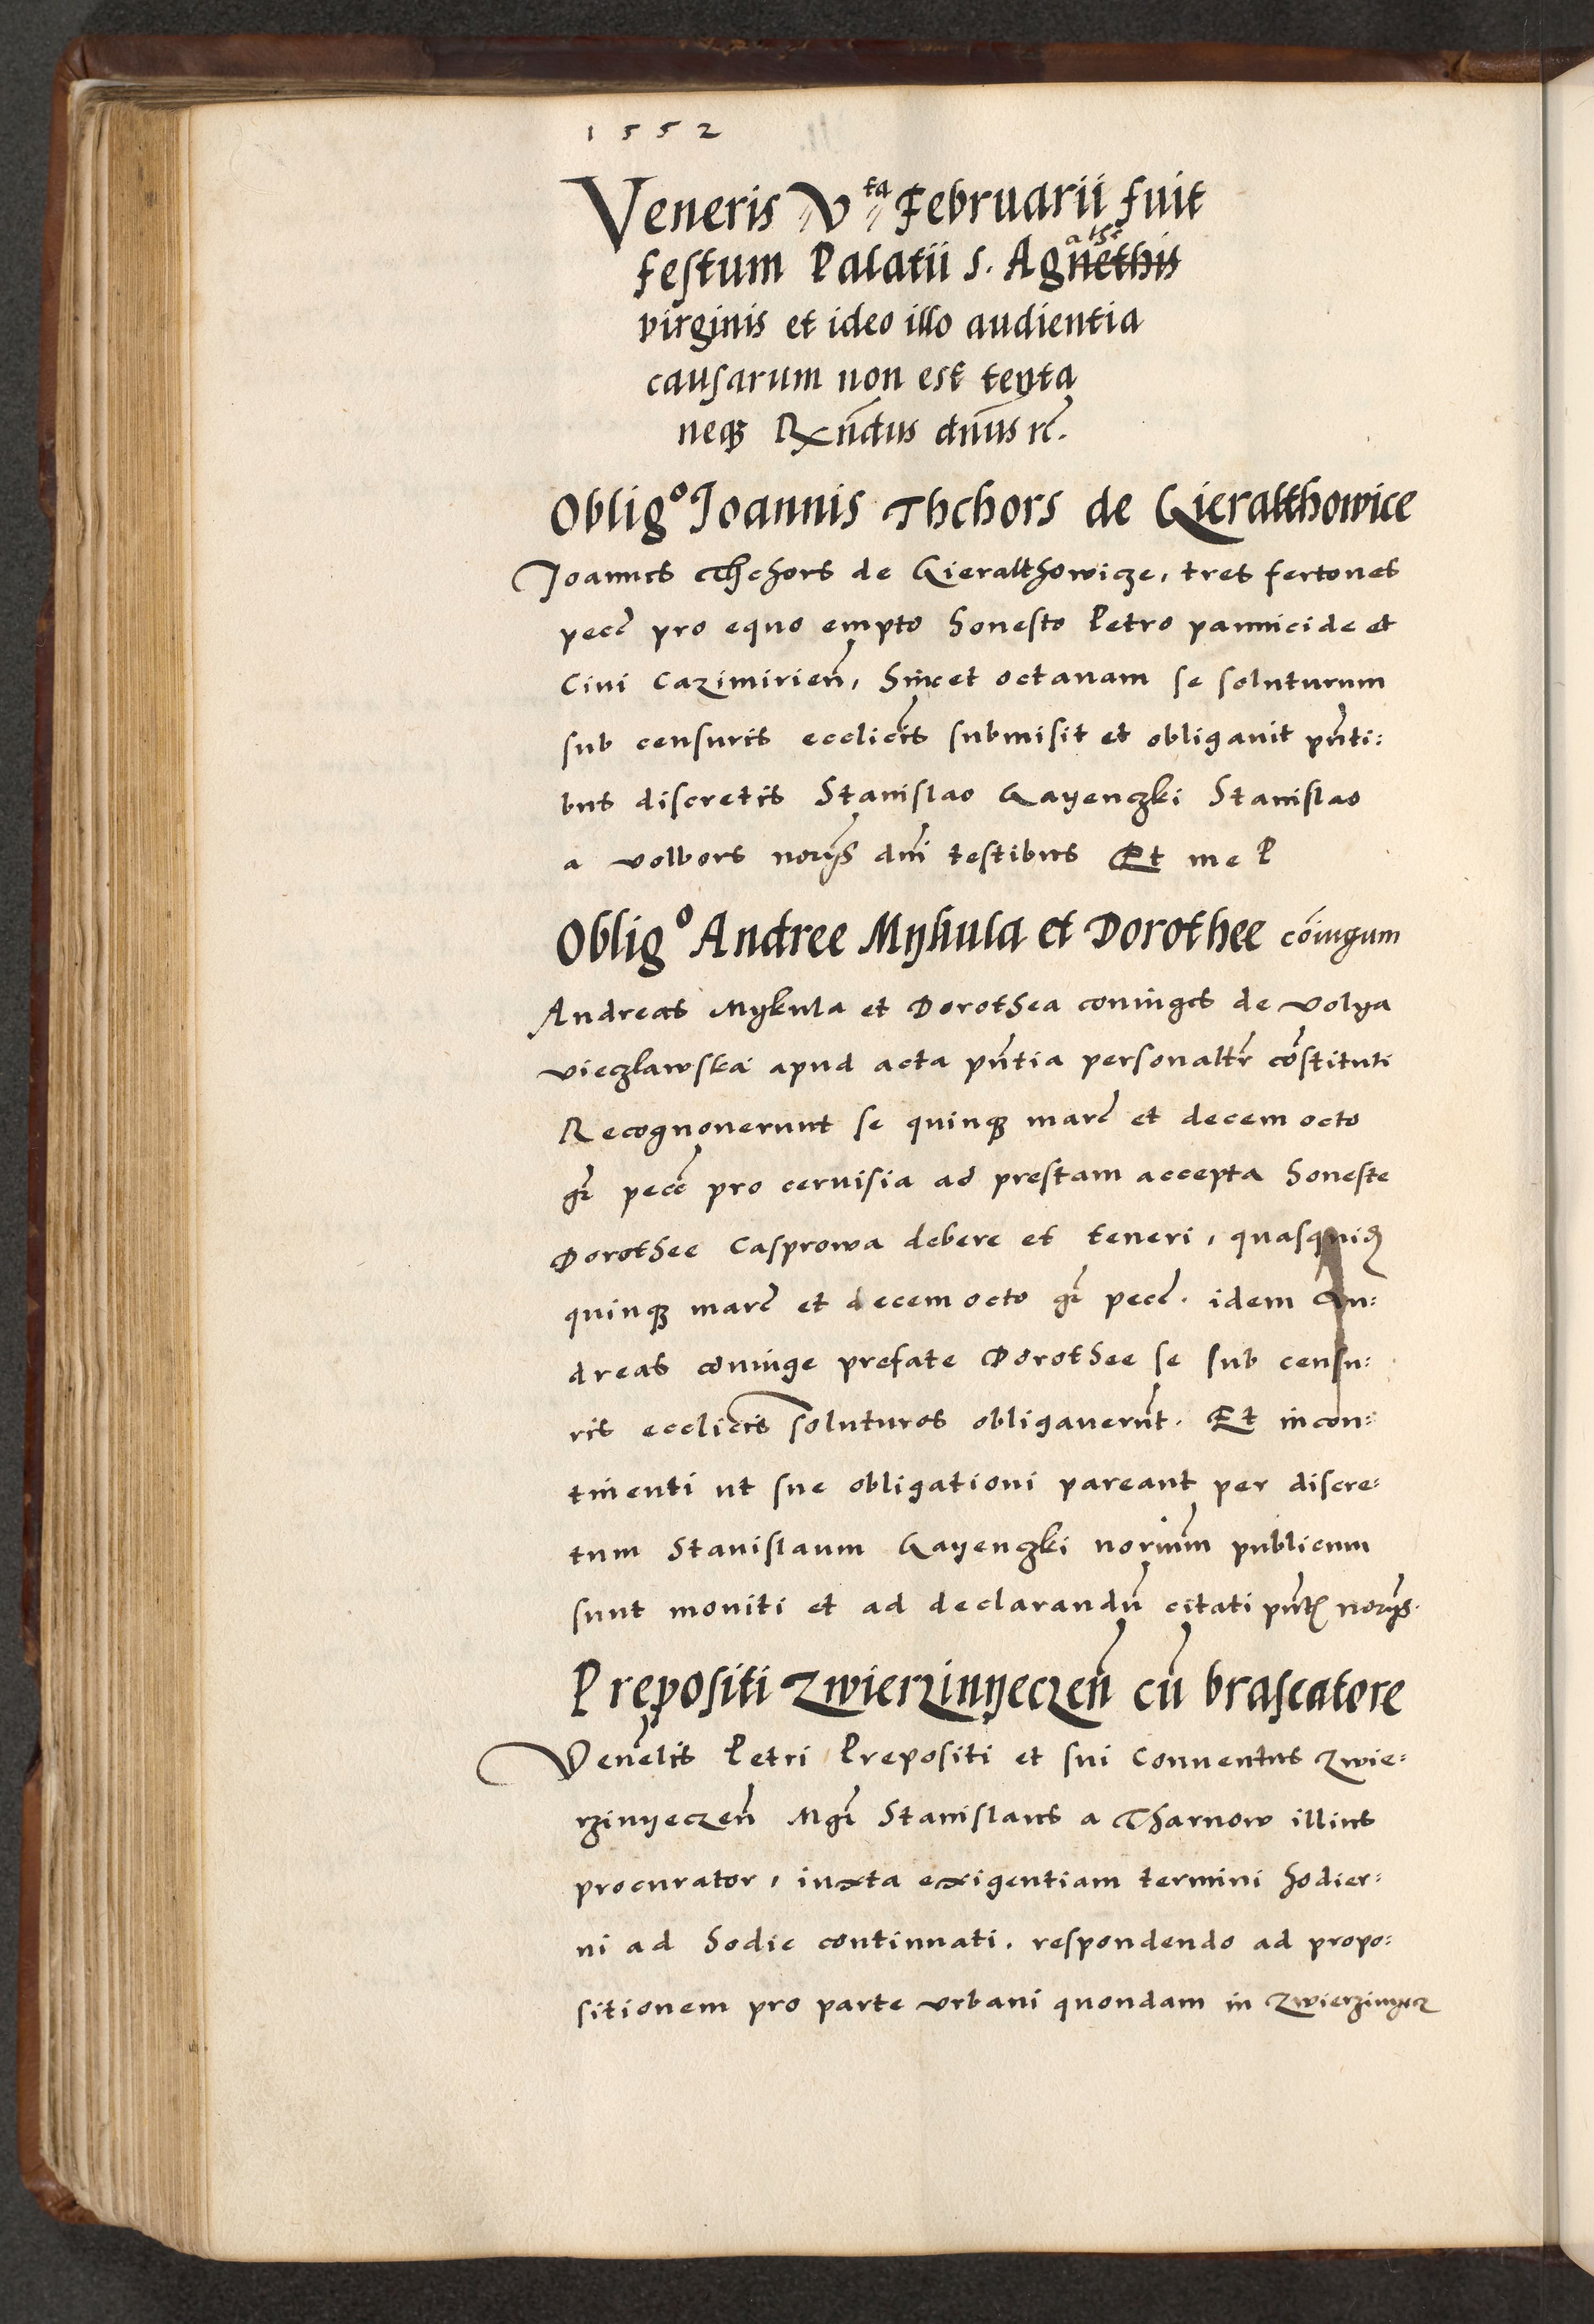 1552
Veneris V ta Februarii fuit
festum Palatii s. Agnethis athe
virginis et ideo illo audientia
causarum non est tenta
neq3 Rndus dnus rc̃.
Oblig° Joannis Thchors de Gieralthowice
Joannes Thchors de Gieralthowicze, tres fertones
pecc̃ pro equo empto honesto Petro pannicide et
Civi Cazimirien̄, hinc et octavam se soluturum
sub censuris ecclicis submisit et obligavit pn̄ti:
bus discretis Stanislao Gayenczki Stanislao
a volbors noryis dni testibus Et me P
Oblig° Andree Mykula et Dorothee cōiugum
Andreas Mykula et Dorothea coniuges de volya
vieczlawska apud acta pn̄tia personaltr̄ cōstituti
Recognoverunt se quinq3 marc̃ et decem octo
gr̃ pecc̃ pro cervisia ad prestam accepta honeste
Dorothee Casprowa debere et teneri, quasquid
quinq3 marc̃ et decem octo gr̃ pecc̃. idem An:
dreas coniuge prefate Dorothee se sub censu:
ris ecclicis soluturos obligaverūt. Et incon:
tinenti ut sue obligationi pareant per discre:
tum Stanislaum Gayenczki norium publicum
sunt moniti et ad declarandū citati pn̄t noryis.
Prepositi Zwierzinyeczen̄ cū brascatore
Venelis Petri Prepositi et sui Conventus Zwie:
rzinyeczen̄ Mgr̃ Stanislaus a Tharnow illius
procurator, iuxta exigentiam termini hodier:
ni ad hodie continuati. respondendo ad propo:
sitionem pro parte urbani quondam in Zwierzinyecz